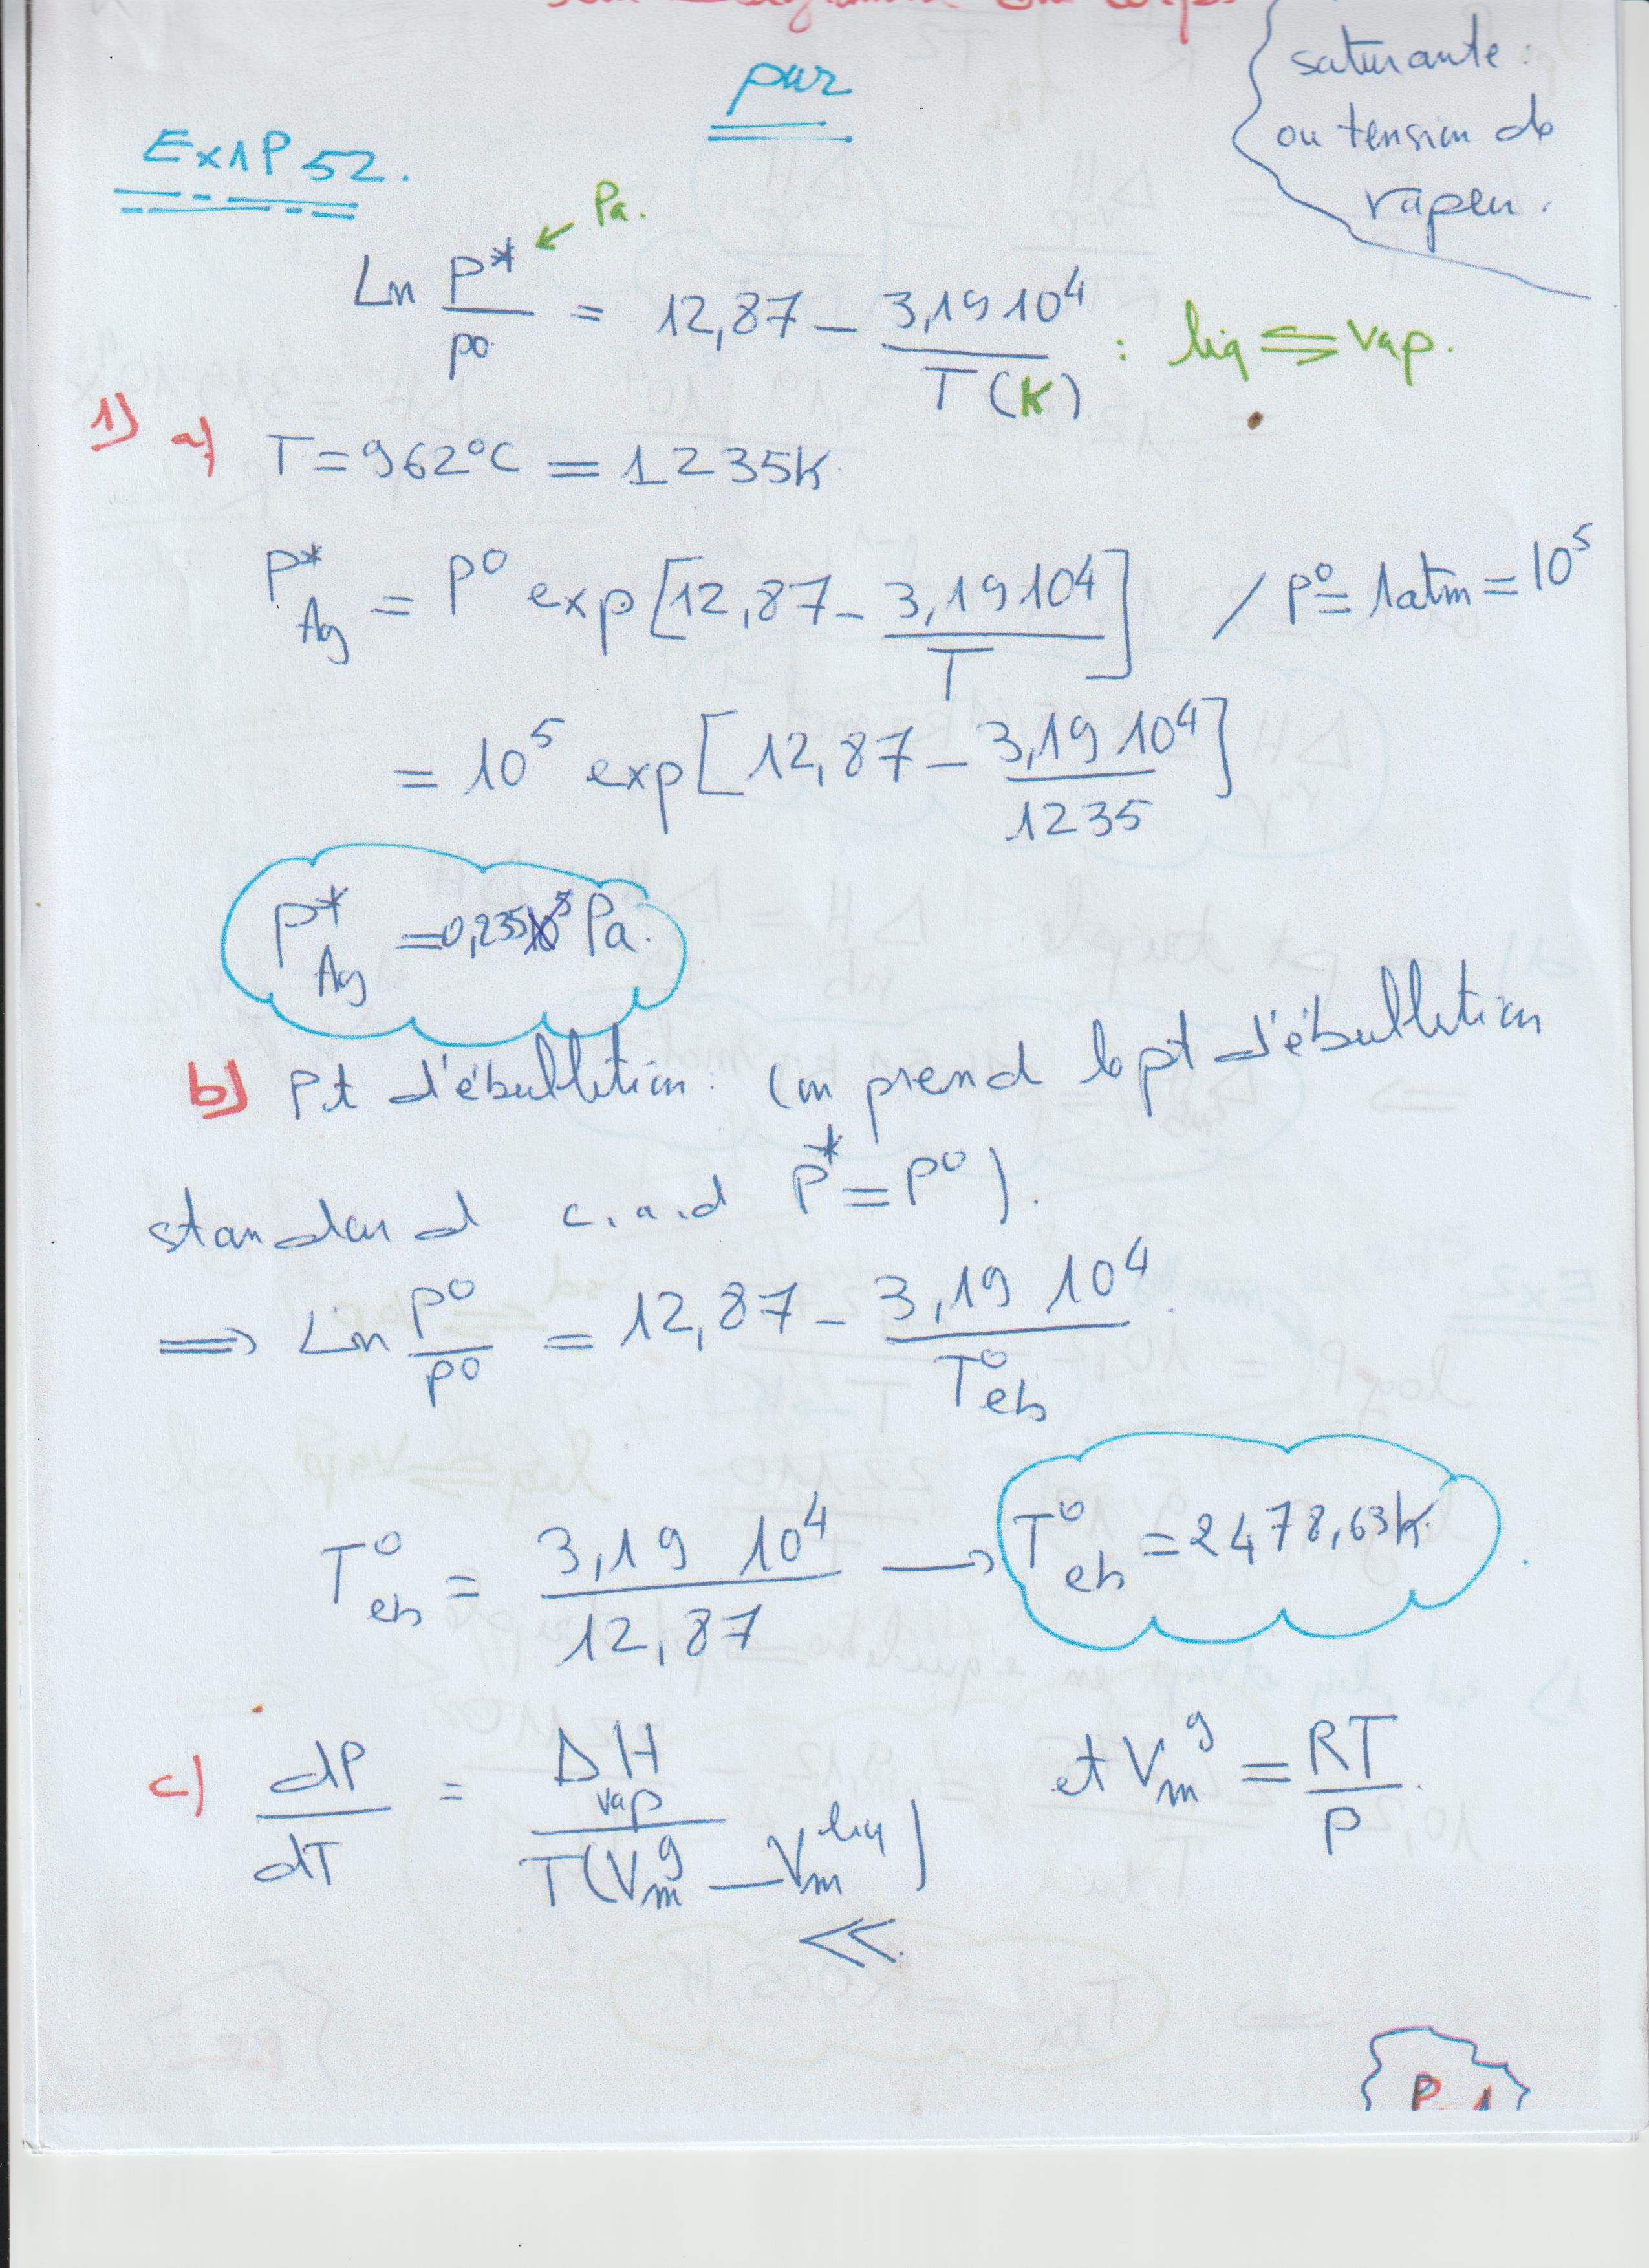 pur
saturante :
ou tension de
vapeu .
Ex1P52.
Pa.
Ln P*/P° = 12,87 - 3,19 10⁴/T(K) : liq ⇌ vap.
1) a) T = 962°C = 1235K
P*Ag = P° exp[12,87 - 3,19 10⁴/T] / P° = 1atm = 10⁵
= 10⁵ exp[12,87 - 3,19 10⁴/1235]
P*Ag = 0,235 Pa.
b) Pt d'ébullition : (on prend le pt d'ébullition
standard c.a.d P* = P°).
⟹ Ln P°/P° = 12,87 - 3,19 10⁴/T°eb
T°eb = 3,19 10⁴/12,87 → T°eb = 2478,63K.
c) dP/dT = ΔHvap/T(Vm^g - Vm^liq) et Vm^g = RT/P.
<<
P-1